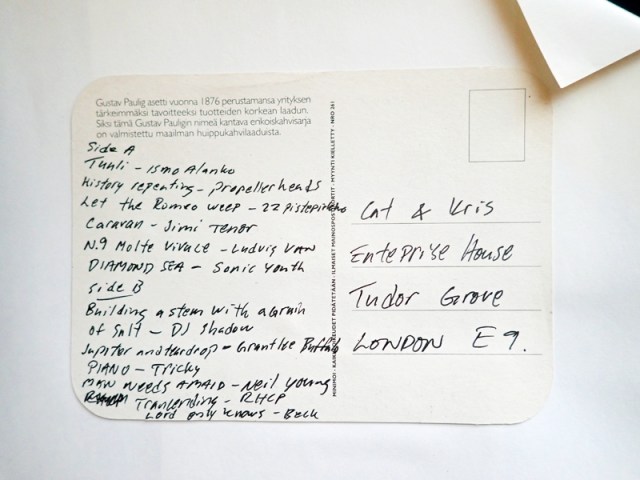 Gustav Paulig asetti vuonna 1876 perustamansa yrityksen
tärkeimmäksi tavoitteeksi tuotteiden korkean laadun.
Siksi tämä Gustav Pauligin nimeä kantava erikoiskahvisarja
on valmistettu maailman huippukahvilaaduista.
Side A
Tuuli - Ismo Alanko
History repeating - Propellerheads
Let the Romeo weep - 22 pistepirkko
Caravan - Jimi Tenor
N.9 Molte Vivace - Ludvig VAN
DIAMOND SEA - Sonic Youth
Side B
Building a stem with a Grain
of Salt - DJ Shadow
Jupiter and teardrop - Grant Lee Buffalo
PIANO - Tricky
MAN NEEDS A MAID - Neil Young
Trancending - RHCP
Lord only knows - Beck
PIDÄTETÄÄN · ILMAISET MAINOSPOSTIKORTIT · MYYNTI KIELLETTY · NRO 261
Cat & Kris
Enteprise House
Tudor Grove
LONDON E9.